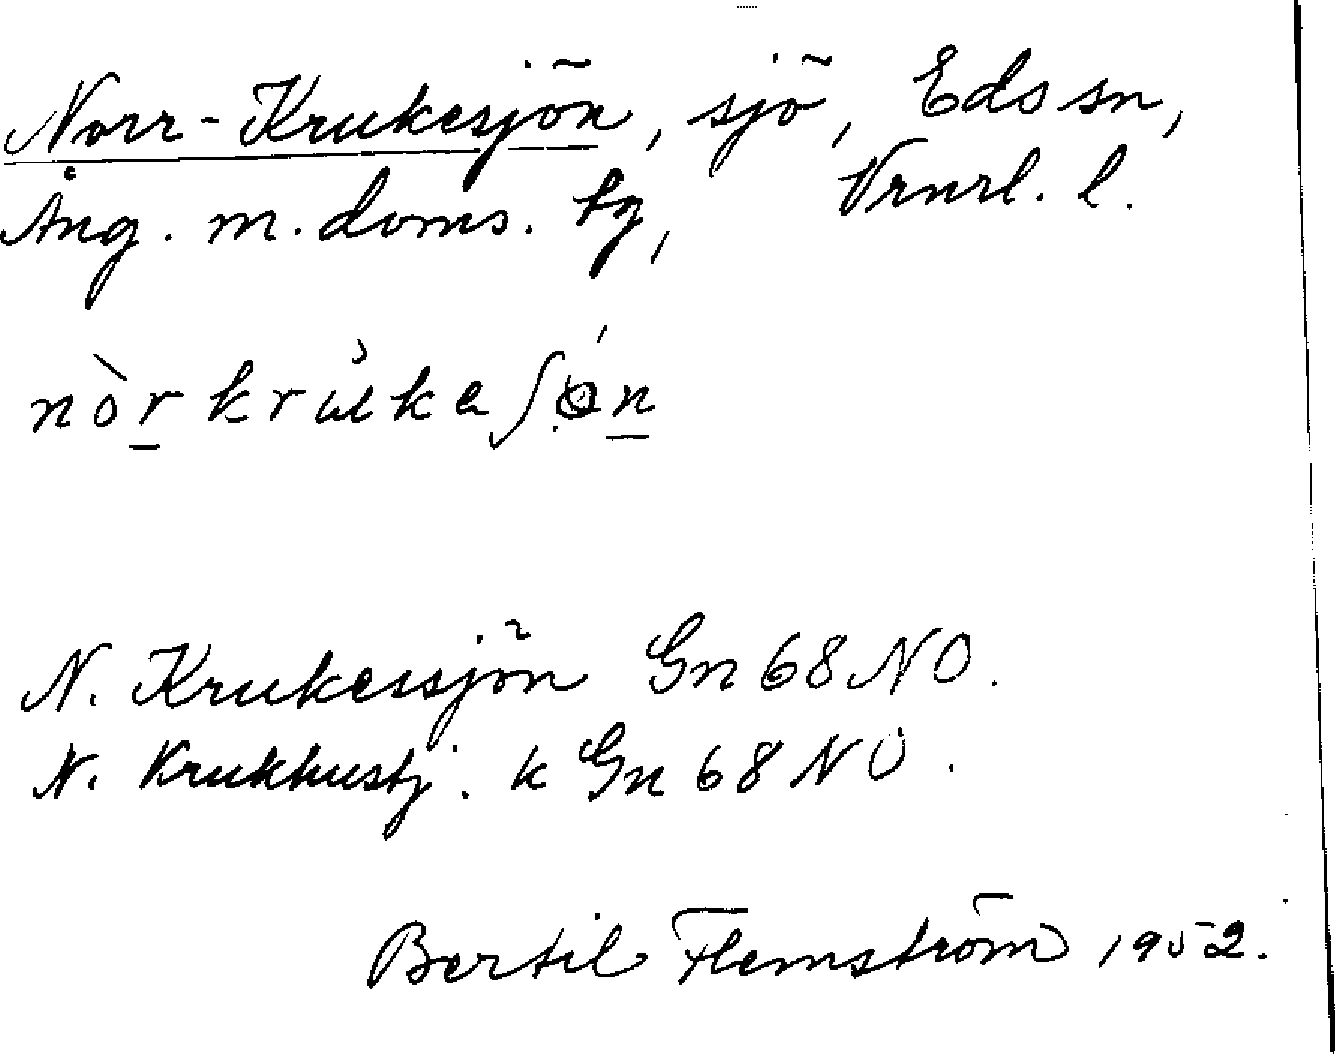 Norr-Krukesjön, sjö, Eds sn,
Ång. m. doms. tg, Vrnrl. l.
nòr krukaʃøn
N. Krukessjön Gn 68 NO.
N. Krukhustj. k Gn 68 NO.
Bertil Flemström 1952.